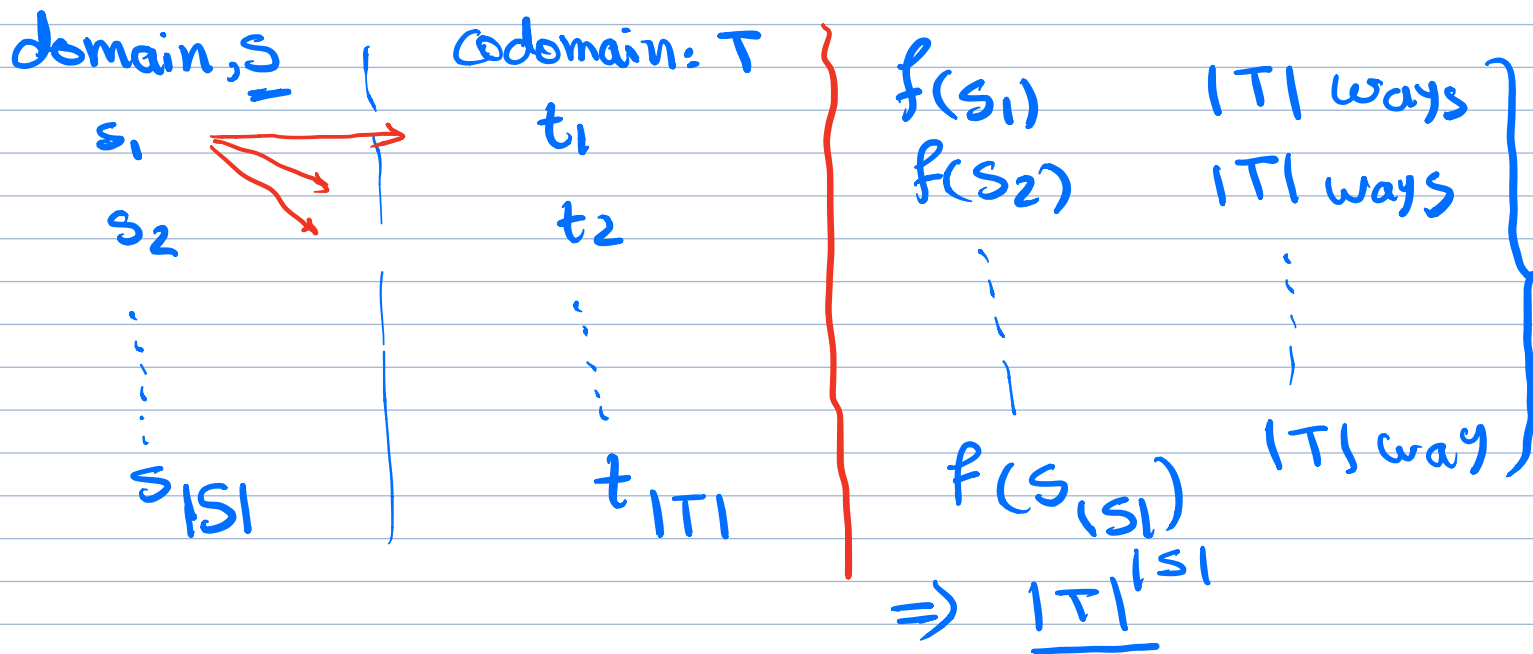 domain, S
s₁
s₂
s_|S|
codomain: T
t₁
t₂
t_|T|
f(s₁) |T| ways
f(s₂) |T| ways
|T| way
f(s_|S|)
⇒ |T|^|S|